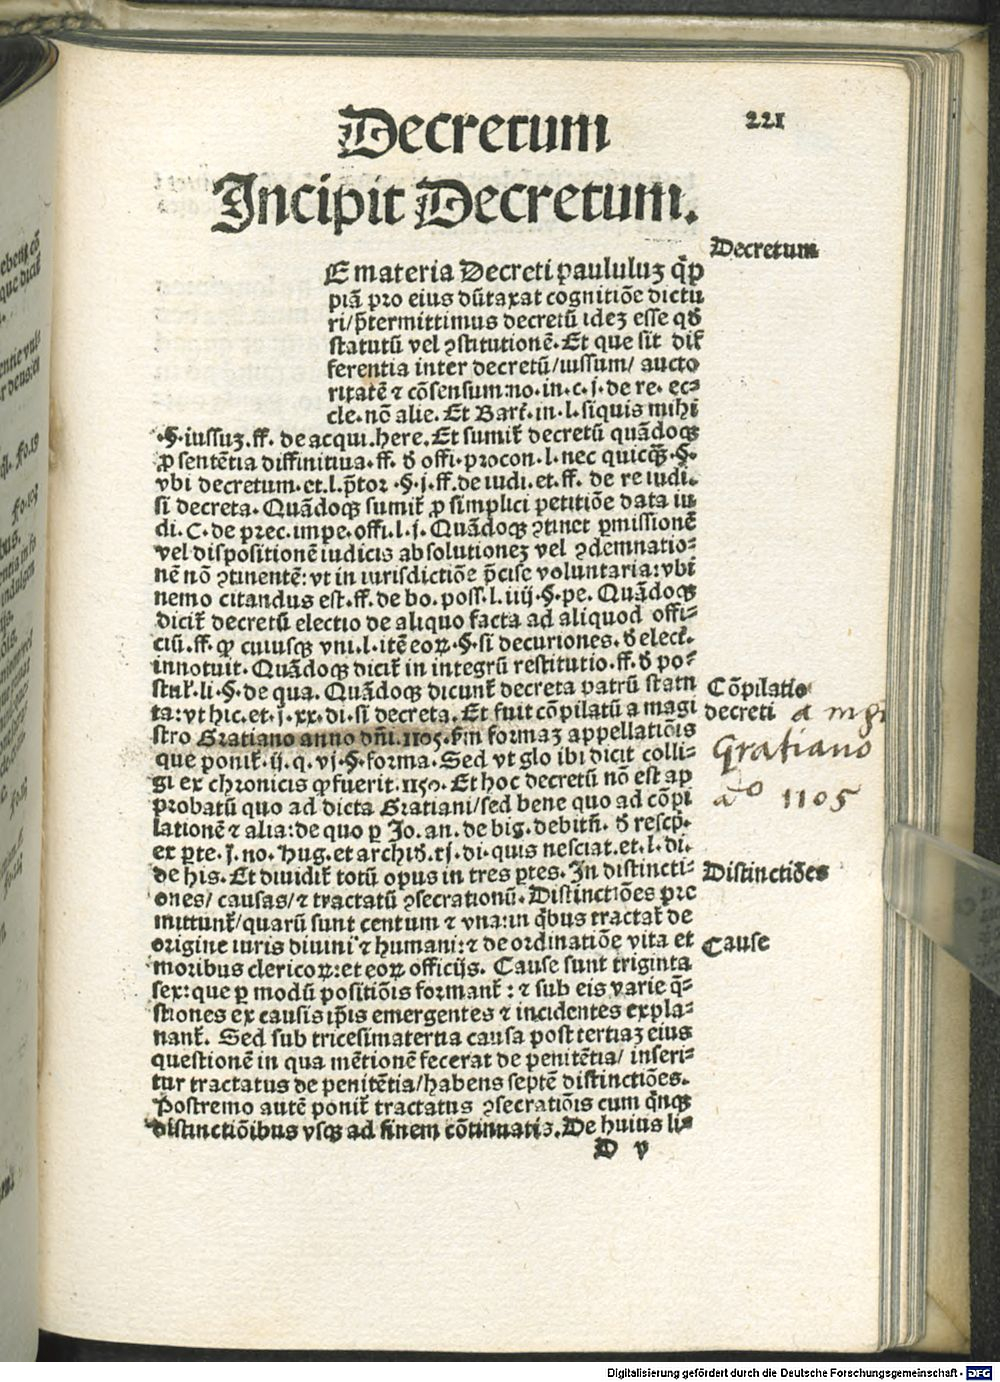 Decretum
221
Incipit Decretum.
Decretum
E materia Decreti paululuʒ q̄p
piā pro eius dūtaxat cognitiōe dictu
ri/p̄termittimus decretū ideʒ esse qđ
statutū vel ꝯstitutionē. Et que sit dif
ferentia inter decretū/iussum/ aucto
ritatē ⁊ cōsensum:no. in. c. j. de re. ec⸗
cle. nō alie. Et Bart̄. in. l. siquis mihi
.§. iussuʒ. ff. de acqui. here. Et sumit̄ decretū quādoqꝫ
ꝓ sententia diffinitiua. ff. đ offi. procon. l. nec quicqꝫ. §.
vbi decretum. et. l. p̄tor .§. j. ff. de iudi. et. ff. de re iudi.
si decreta. Quādoqꝫ sumit̄ ꝓ simplici petitiōe data iu⸗
di. C. de prec. impe. offi. l. j. Quādoqꝫ ꝯtinet ꝑmissionē
vel dispositionē iudicis absolutioneʒ vel ꝯdemnatio⸗
nē nō ꝯtinentē: vt in iurisdictiōe p̄cise voluntaria: vbi
nemo citandus est. ff. de bo. poss. l. iiij. §. pe. Quādoqꝫ
dicit̄ decretū electio de aliquo facta ad aliquod offi⸗
ciū. ff. qđ cuiusqꝫ vni. l. itē eoꝝ. §. si decuriones. đ elect̄.
innotuit. Quādoqꝫ dicit̄ in integrū restitutio. ff. đ po⸗
stul̄. li. §. de qua. Quādoqꝫ dicunt̄ decreta patrū statu
ta: vt hic. et. j. xx. di. si decreta. Et fuit cōpilatū a magi
stro Gratiano anno dn̄i. 1105. ẜm formaʒ appellatiōis
que ponit̄. ij. q. vj. §. forma. Sed vt glo ibi dicit colli⸗
gi ex chronicis ꝙ fuerit. 1150. Et hoc decretū nō est ap
probatū quo ad dicta Gratiani/sed bene quo ad cōpi
lationē ⁊ alia: de quo ꝑ Jo. an. de big. debitn̄. đ rescp̄.
ex ꝑte. j. no. Hug. et archiđ. xj. di. quis nesciat. et. l. di.
de his. Et diuidit̄ totū opus in tres ꝑtes. In distincti⸗
ones/ causas/ ⁊ tractatū ꝯsecrationū. Distinctiōes pre
mittunt̄/quarū sunt centum ⁊ vna: in qꝰbus tractat̄ de
origine iuris diuini ⁊ humani: ⁊ de ordinatiōe vita et
moribus clericoꝝ: et eoꝝ officijs. Cause sunt triginta
sex: que ꝑ modū positiōis formant̄ : ⁊ sub eis varie q̄⸗
stiones ex causis ip̄is emergentes ⁊ incidentes expla⸗
nant̄. Sed sub tricesimatertia causa post tertiaʒ eius
questionē in qua mētionē fecerat de penitētia/ inseri⸗
tur tractatus de penitētia/habens septē distinctiōes.
Postremo autē ponit̄ tractatus ꝯsecratiōis cum qn̄qꝫ
distinctiōibus vsqꝫ ad finem cōtinuatis. De huius li⸗
D v
Cōpilatio
decreti a mgr
Gratiano
a° 1105
Distinctiões
Cause
Digitalisierung gefördert durch die Deutsche Forschungsgemeinschaft - DFG